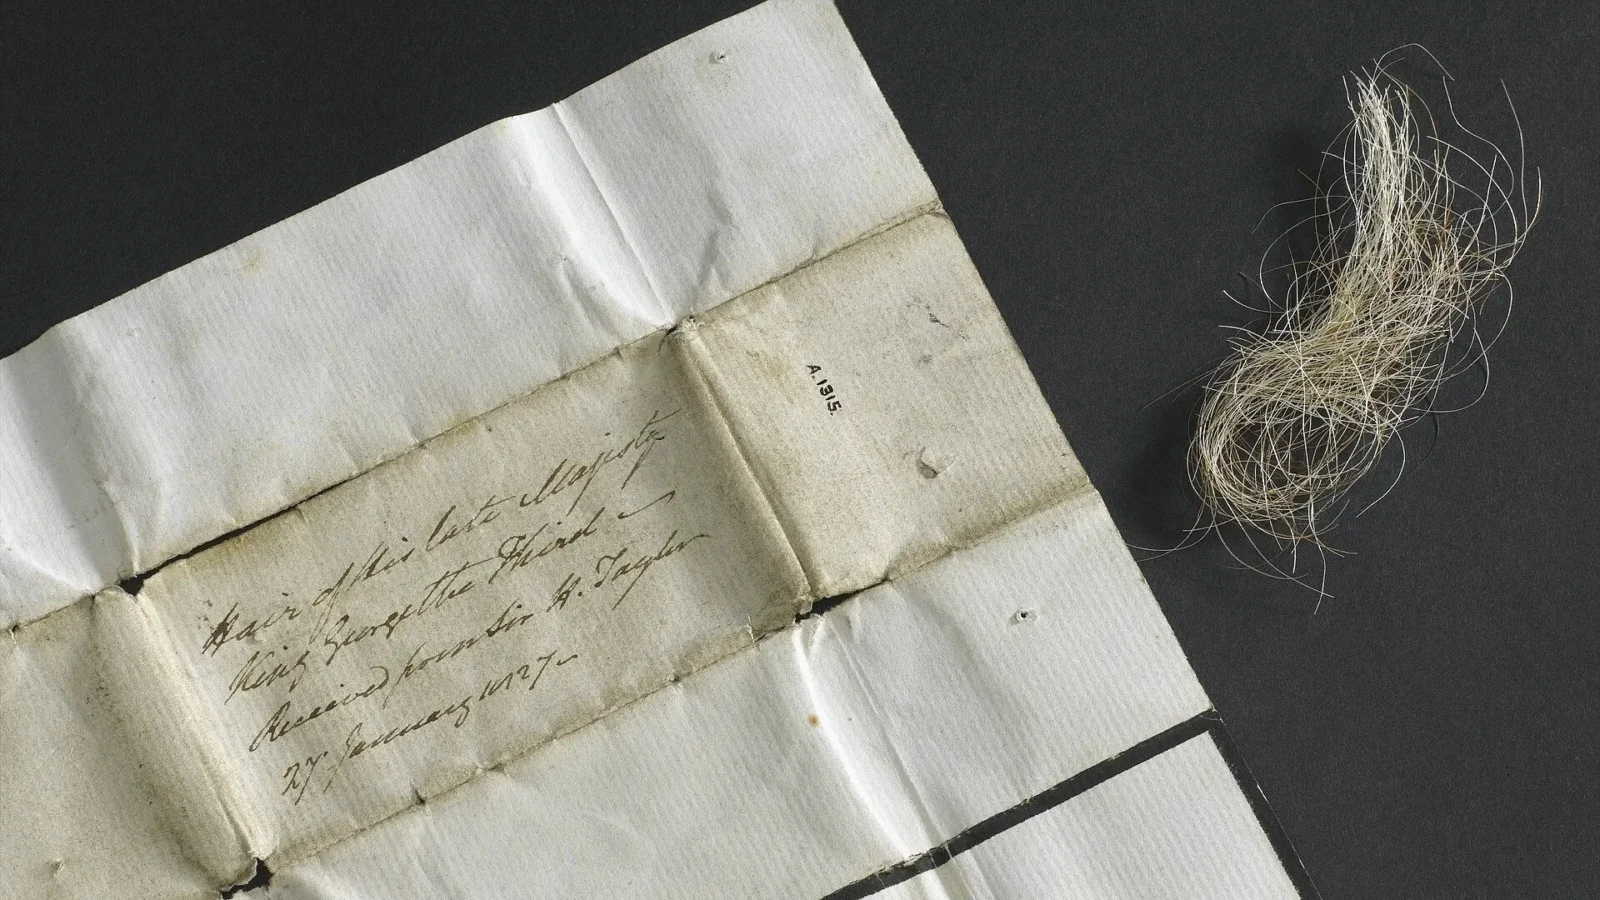 Hair of His late Majesty
King George the Third
Received from Sir H. Taylor
27 January 1827
A.1315.